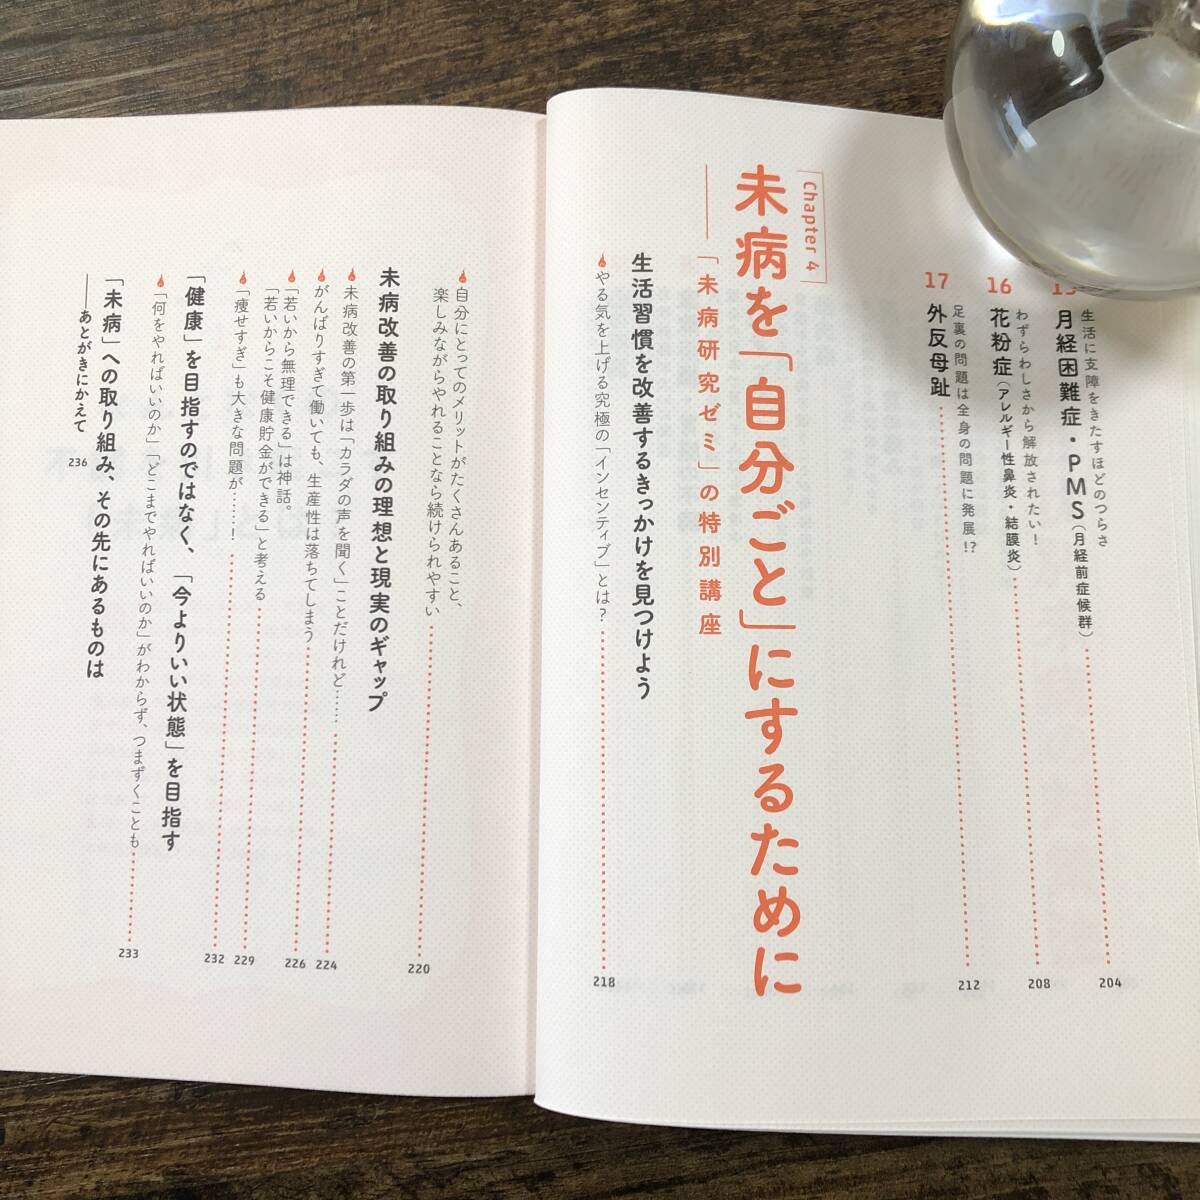 15
月経困難症・PMS（月経前症候群）
生活に支障をきたすほどのつらさ
204
16
花粉症（アレルギー性鼻炎・結膜炎）
わずらわしさから解放されたい！
208
17
外反母趾
足裏の問題は全身の問題に発展！？
212
Chapter 4
未病を「自分ごと」にするために
――「未病研究ゼミ」の特別講座
生活習慣を改善するきっかけを見つけよう
やる気を上げる究極の「インセンティブ」とは？
218
自分にとってのメリットがたくさんあること、
楽しみながらやれることなら続けられやすい
220
未病改善の取り組みの理想と現実のギャップ
未病改善の第一歩は「カラダの声を聞く」ことだけれど……
224
がんばりすぎて働いても、生産性は落ちてしまう
226
「若いから無理できる」は神話。
「若いからこそ健康貯金ができる」と考える
229
「痩せすぎ」も大きな問題が……！
232
「健康」を目指すのではなく、「今よりいい状態」を目指す
「何をやればいいのか」「どこまでやればいいのか」がわからず、つまずくことも
233
「未病」への取り組み、その先にあるものは
――あとがきにかえて
236